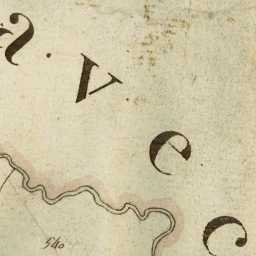 V
e
c
540